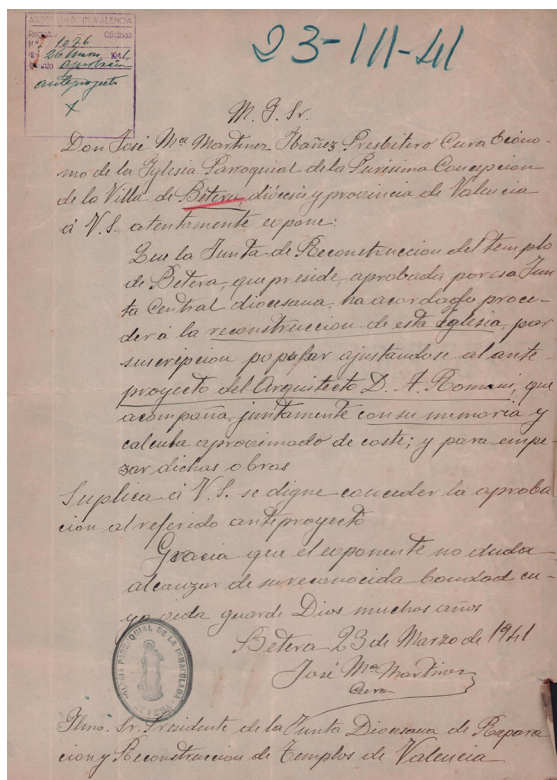 ARZOBISPADO DE VALENCIA
Registro Oficinas
Nº 1026
aprobación
anteproyecto
X
23-III-41
M. I. Sr.
Don José Mª Martinez Ibañez Presbitero Cura Ecóno-
mo de la Iglesia Parroquial de la Purísima Concepcion
de la Villa de Bétera, diócesis y provincia de Valencia
á V. S. atentamente expone:
Que la Junta de Reconstruccion del templo
de Betera, que preside, aprobada por esa Jun
ta Central diocesana, ha acordado proce-
der á la reconstruccion de esta Iglesia, por
suscripcion popular ajustandose al ante-
proyecto del Arquitecto D. A. Romani, que
acompaña, juntamente con su memoria y
calculo aproximado de coste; y para empe-
zar dichas obras
Suplica á V. S. se digne conceder la aproba
cion al referido anteproyecto
Gracia que el exponente no duda
alcanzar de su reconocida bondad cu-
ya vida guarde Dios muchos años
Betera 23 de Marzo de 1941
José Mª Martinez
Cura
IGLESIA PARROQUIAL DE LA INMACULADA
Ilmo. Sr. Presidente de la Junta Diocesana de Repara
cion y Reconstruccion de Templos de Valencia